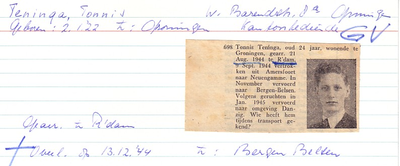 Teninga, Tonnis w. Barendstr. 8a Groningen
Geboren: 2.1.22 te: Groningen Kantoorbediende
GV
698 Tonnis Teninga, oud 24 jaar, wonende te
Groningen, gearr. 21
Aug. 1944 te R'dam.
9 Sept. 1944 vertrok-
ken uit Amersfoort
naar Neuengamme. In
November vervoerd
naar Bergen-Belsen.
Volgens geruchten in
Jan. 1945 vervoerd
naar omgeving Dan-
zig. Wie heeft hem
tijdens transport ge-
kend?
Gearr. te R'dam
Overl. op 13.12.'44 te: Bergen Belsen